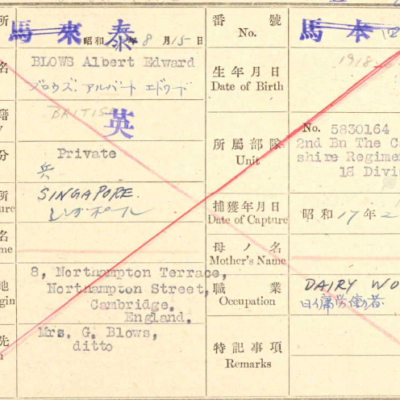 所 馬來 泰 昭和 年 8 月 15 日
番號 No. 馬本
名 BLOWS Albert Edward
ブロウズ. アルバート エドワード
生年月日 Date of Birth 1918
籍 BRITISH 英
所屬部隊 Unit No. 5830164
2nd Bn The Ca
shire Regimen
18 Divi
分 Private
兵
所 SINGAPORE.
ture
捕獲年月日 Date of Capture 昭和 17 年 2
名
ame
母ノ名 Mother's Name
地
rigin
8, Northampton Terrace,
Northampton Street,
Cambridge,
England.
職業 Occupation DAIRY WO
先 Mrs. G. Blows,
ditto
特記事項 Remarks